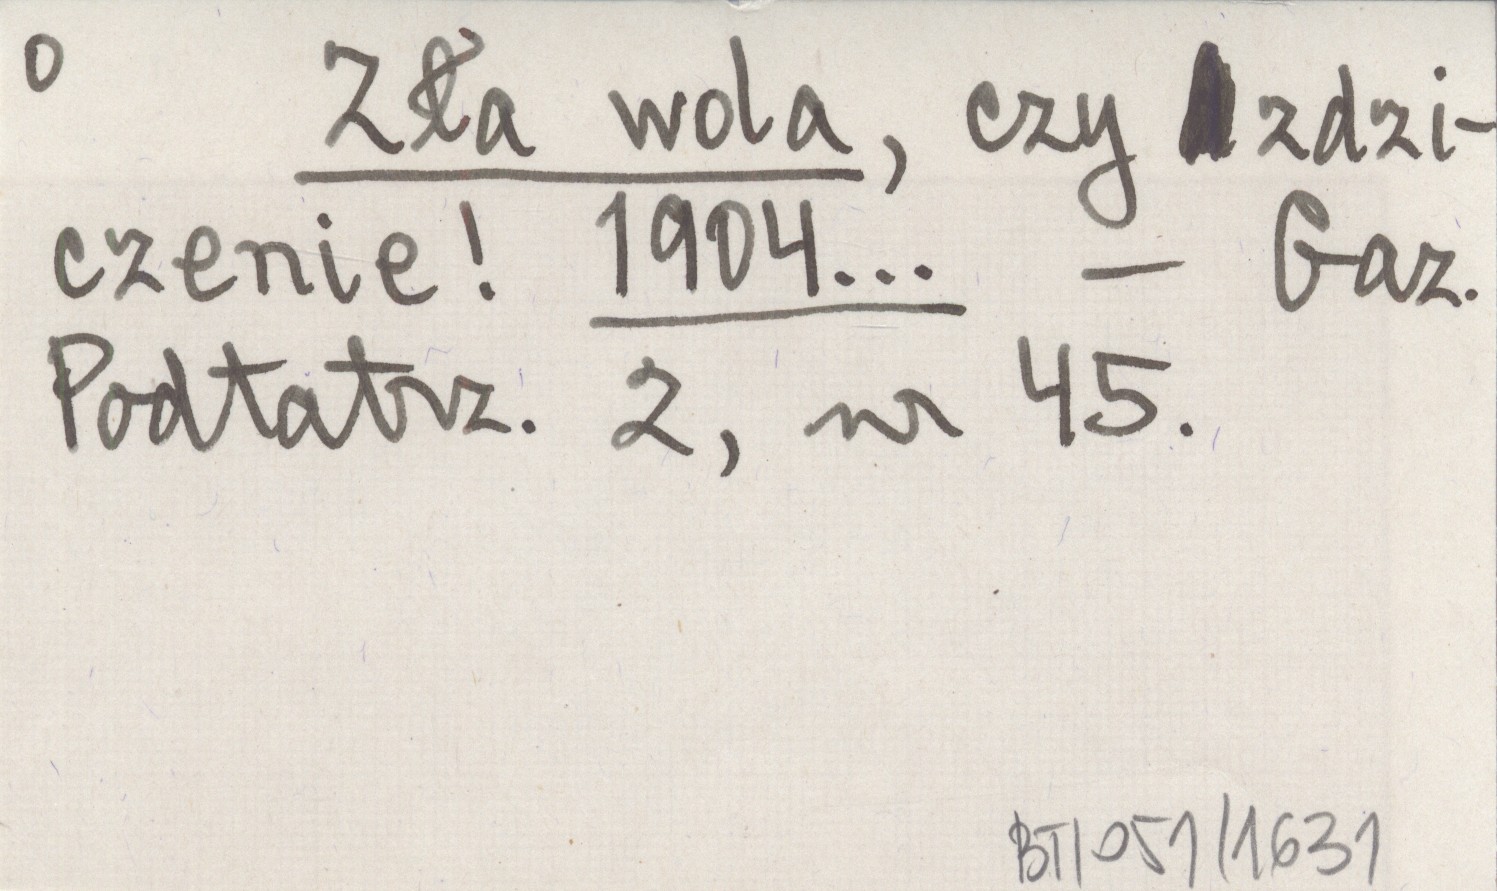 0 Zła wola, czy zdzi-
czenie! 1904... — Gaz.
Podtatrz. 2, nr 45.
BT/051/1631